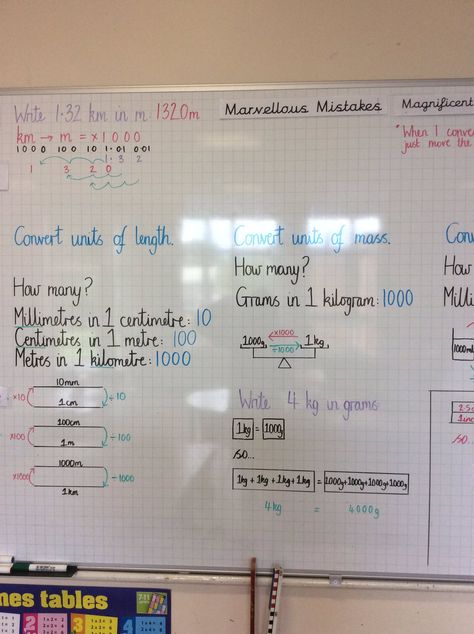 Write 1.32 km in m 1320m
km → m = ×1000
1000 100 10 1 .01 0.01
1 . 3 2
1 3 2 0
Marvellous Mistakes
Magnificent
"When I conve
just move the
Convert units of length.
How many?
Millimetres in 1 centimetre: 10
Centimetres in 1 metre: 100
Metres in 1 kilometre: 1000
10mm
×10 ÷10
1cm
100cm
×100 ÷100
1m
1000m
×1000 ÷1000
1km
Convert units of mass.
How many?
Grams in 1 kilogram: 1000
×1000
1000g 1kg
÷1000
Write 4 kg in grams
1kg = 1000g
so...
1kg + 1kg + 1kg + 1kg = 1000g+1000g+1000g+1000g
4kg = 4000g
Con
How
Milli
1000ml
so...
mes tables